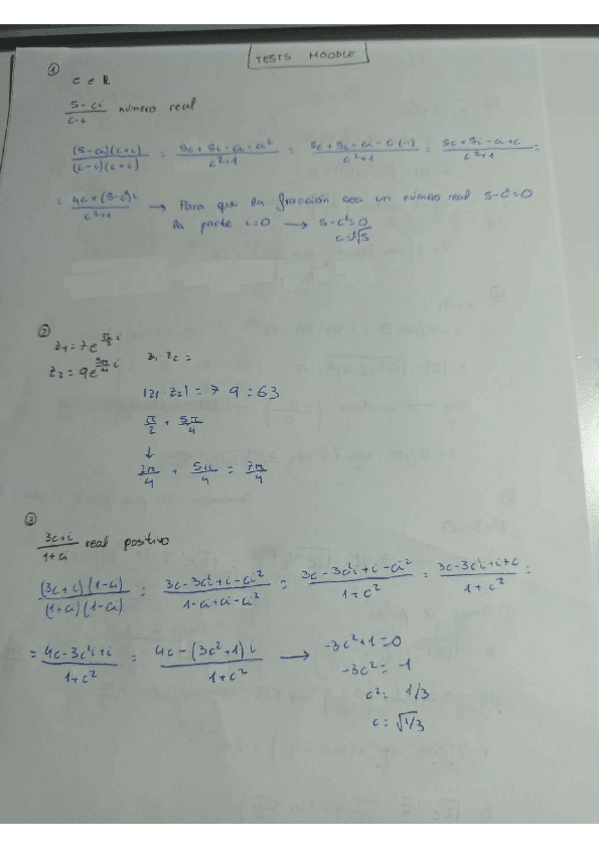 TESTS MOODLE
① c e R
5-ci / c-i número real
(5-ci)(c+i) / (c-i)(c+i) = 5c+5i-ci-ci² / c²+1 = 5c+5i-ci-c(-1) / c²+1 = 5c+5i-ci+c / c²+1 =
= 4c+(5-c²)i / c²+1 → Para que la fracción sea un número real 5-c²=0
la parte i=0 → 5-c²=0
c=±√5
②
z₁=7e^(π/2 i) z₁·z₂=
z₂=9e^(5π/4 i)
|z₁·z₂|=7·9=63
π/2 + 5π/4
↓
2π/4 + 5π/4 = 7π/4
③
3c+i / 1+ci real positivo
(3c+i)(1-ci) / (1+ci)(1-ci) = 3c-3c²i+i-ci² / 1-ci+ci-ci² = 3c-3c²i+i-ci² / 1+c² = 3c-3c²i+i+c / 1+c² =
= 4c-3c²i+i / 1+c² = 4c-(3c²+1)i / 1+c² → -3c²+1=0
-3c²=-1
c²=1/3
c=√1/3